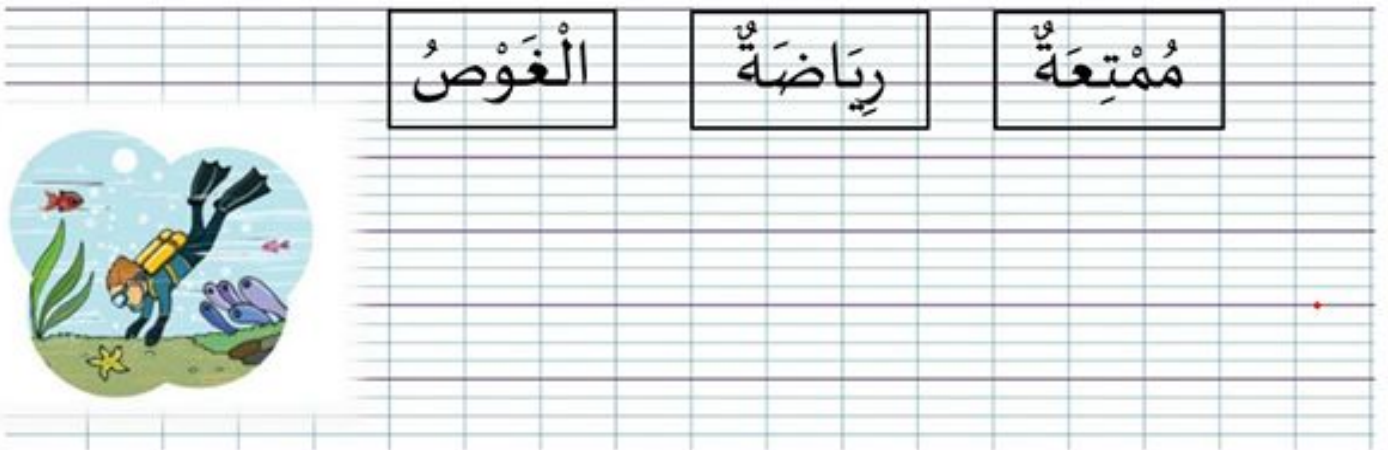 مُمْتِعَةٌ رِيَاضَةٌ الْغَوْصُ